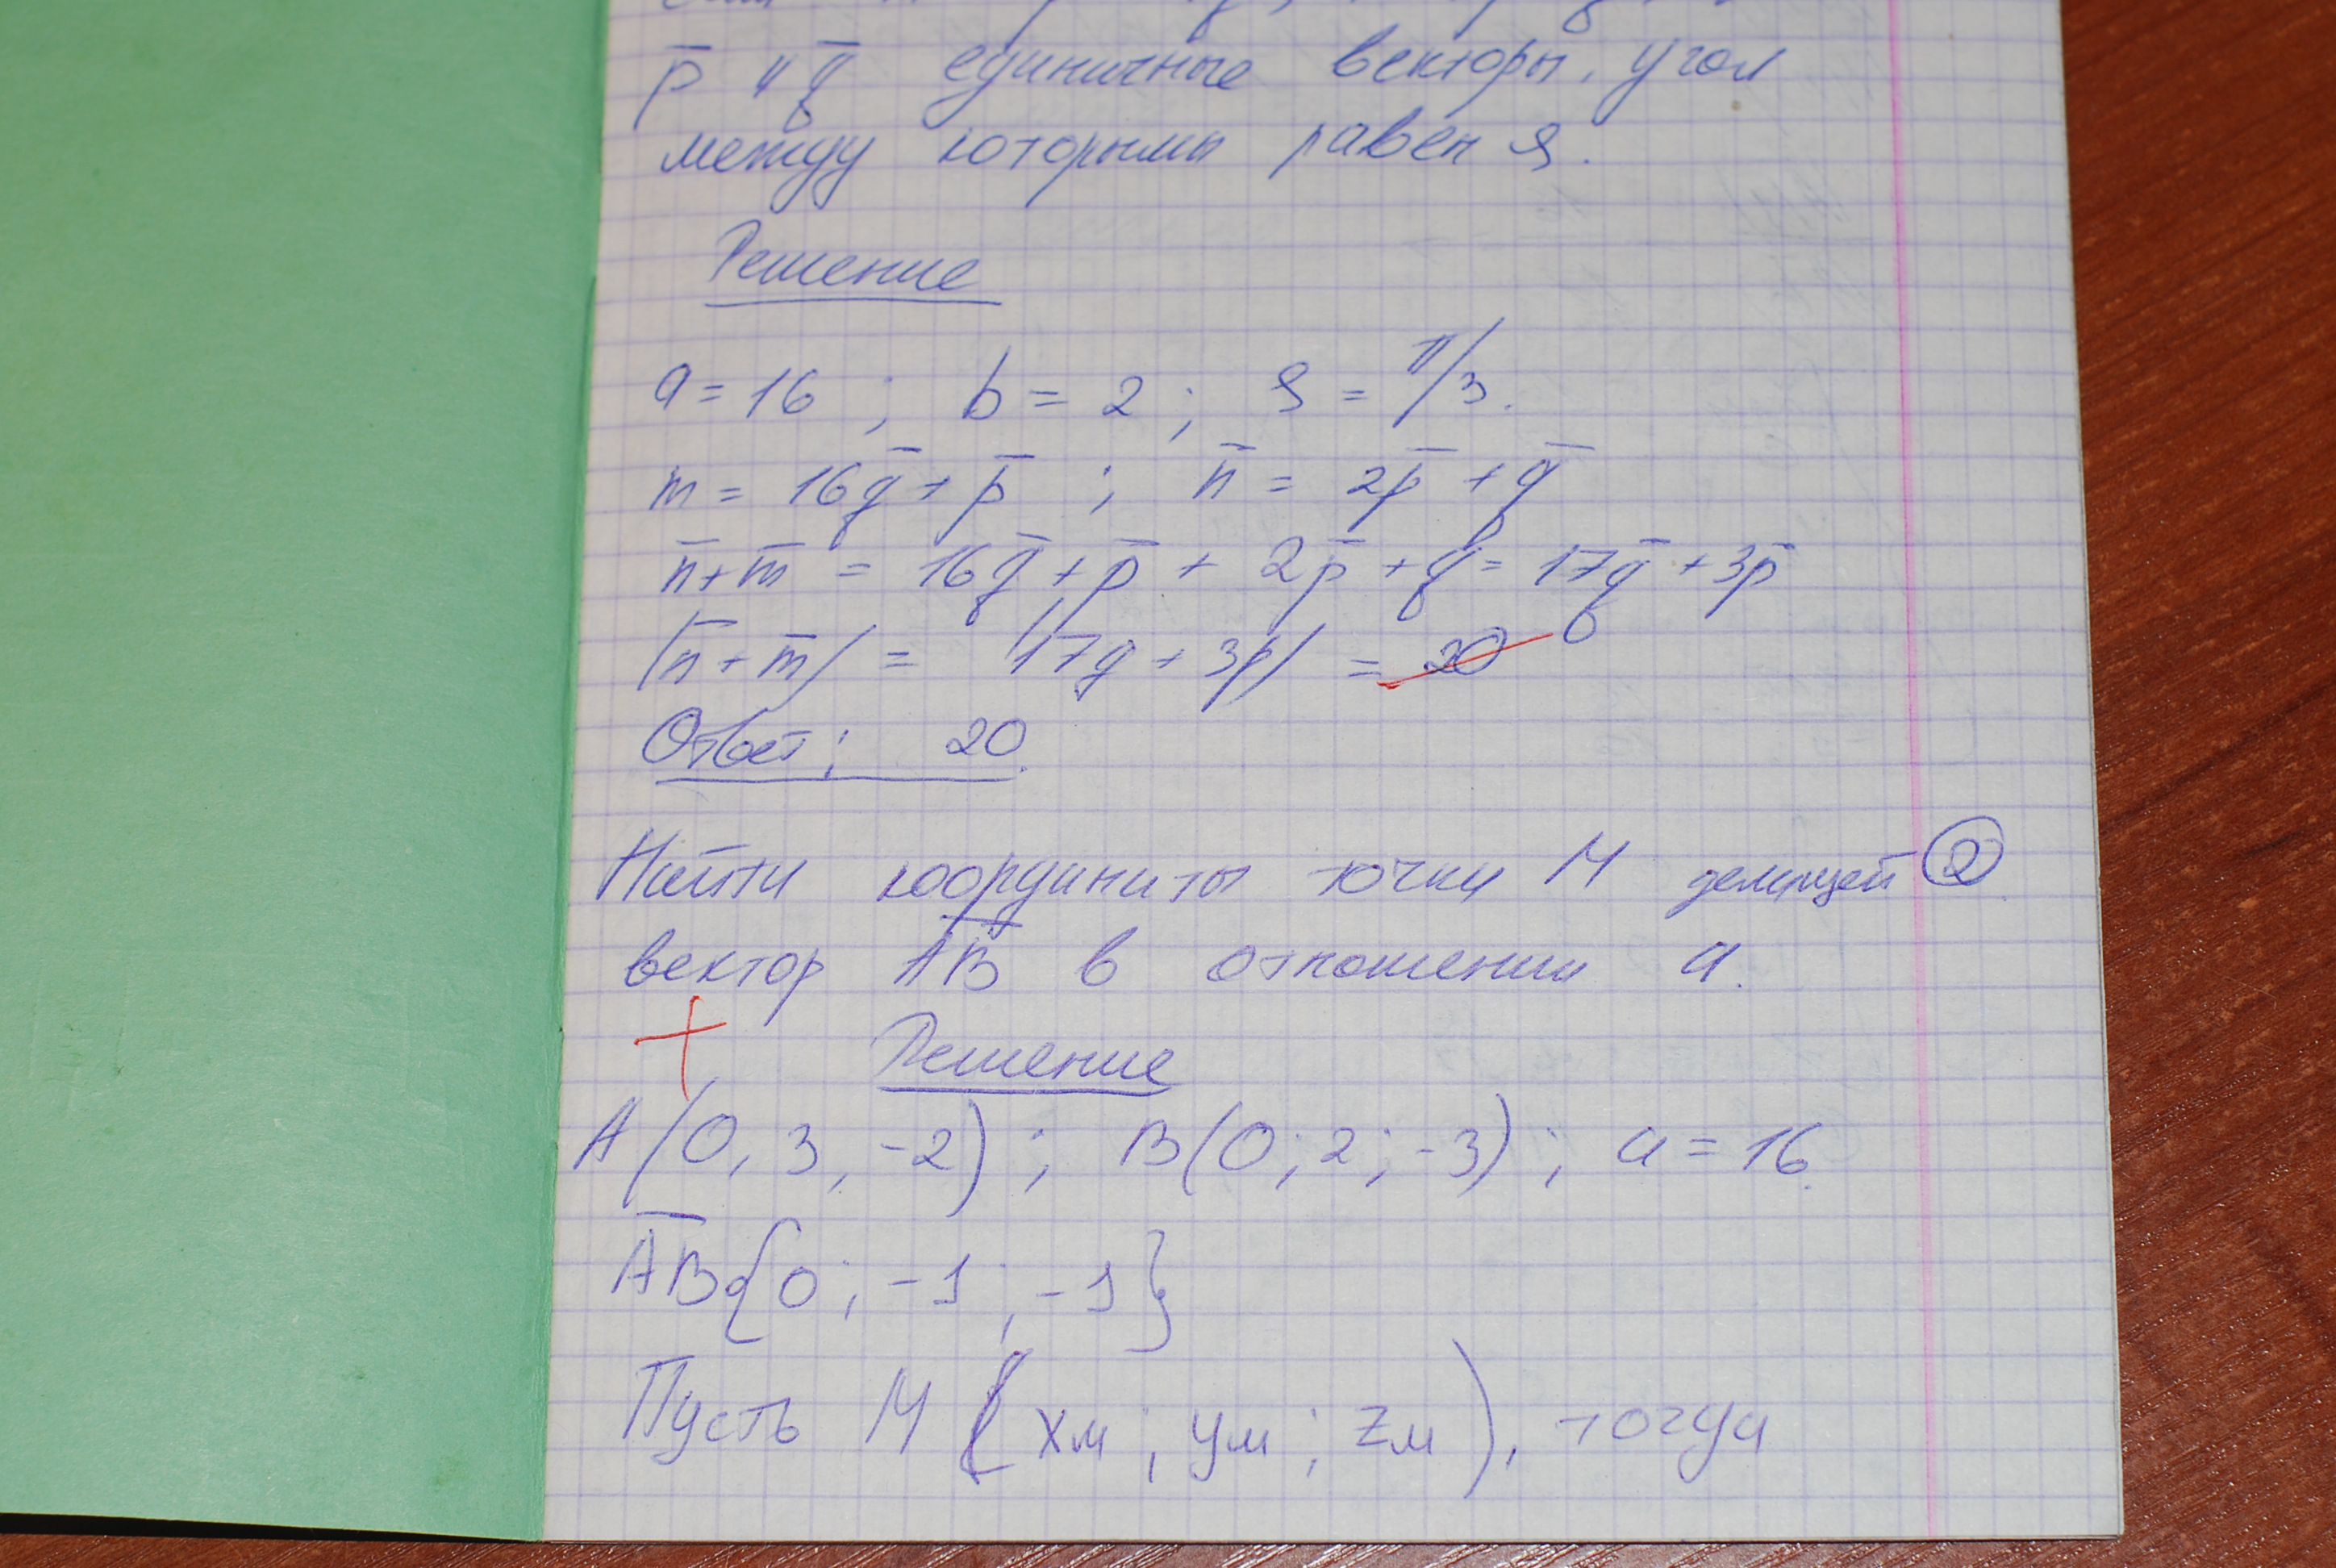 p̄ и q̄ единичные векторы. угол
между которыми равен φ.
Решение
a = 16 ; b = 2 ; φ = π/3.
m = 16q̄ + p̄ ; n̄ = 2p̄ + q̄
n̄ + m̄ = 16q̄ + p̄ + 2p̄ + q̄ = 17q̄ + 3p̄
|n̄ + m̄| = |17q + 3p| = 20
Ответ: 20.
Найти координаты точки M делящей ②
вектор A̅B̅ в отношении a.
+ Решение
A(0, 3, -2) ; B(0; 2; -3) ; a = 16.
A̅B̅{0; -1; -1}
Пусть M (xм ; yм ; zм), тогда